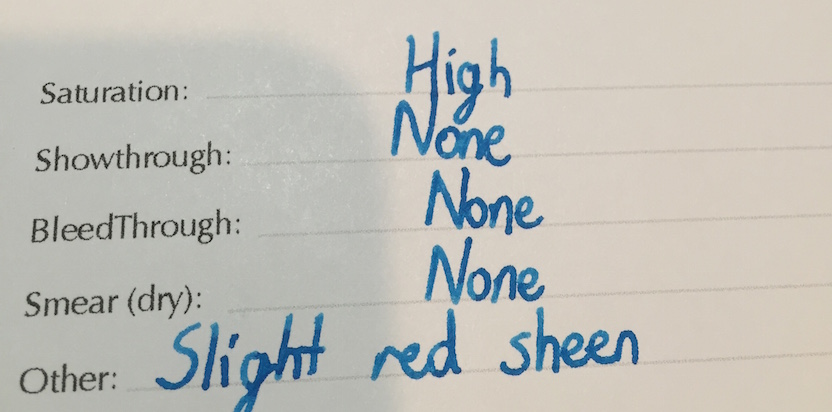 Saturation: High
Showthrough: None
BleedThrough: None
Smear (dry): None
Other: Slight red sheen